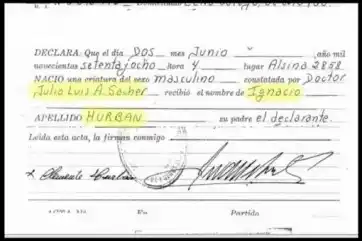 DECLARA: Que el día DOS mes Junio año mil
novecientos setentaiocho hora 4 lugar Alsina 2858
NACIO una criatura del sexo masculino constatada por Doctor
Julio Luis A. Sacher recibió el nombre de Ignacio
APELLIDO HURBAN su padre el declarante
Leída esta acta, la firman conmigo
x Clemente Hurban
Partida